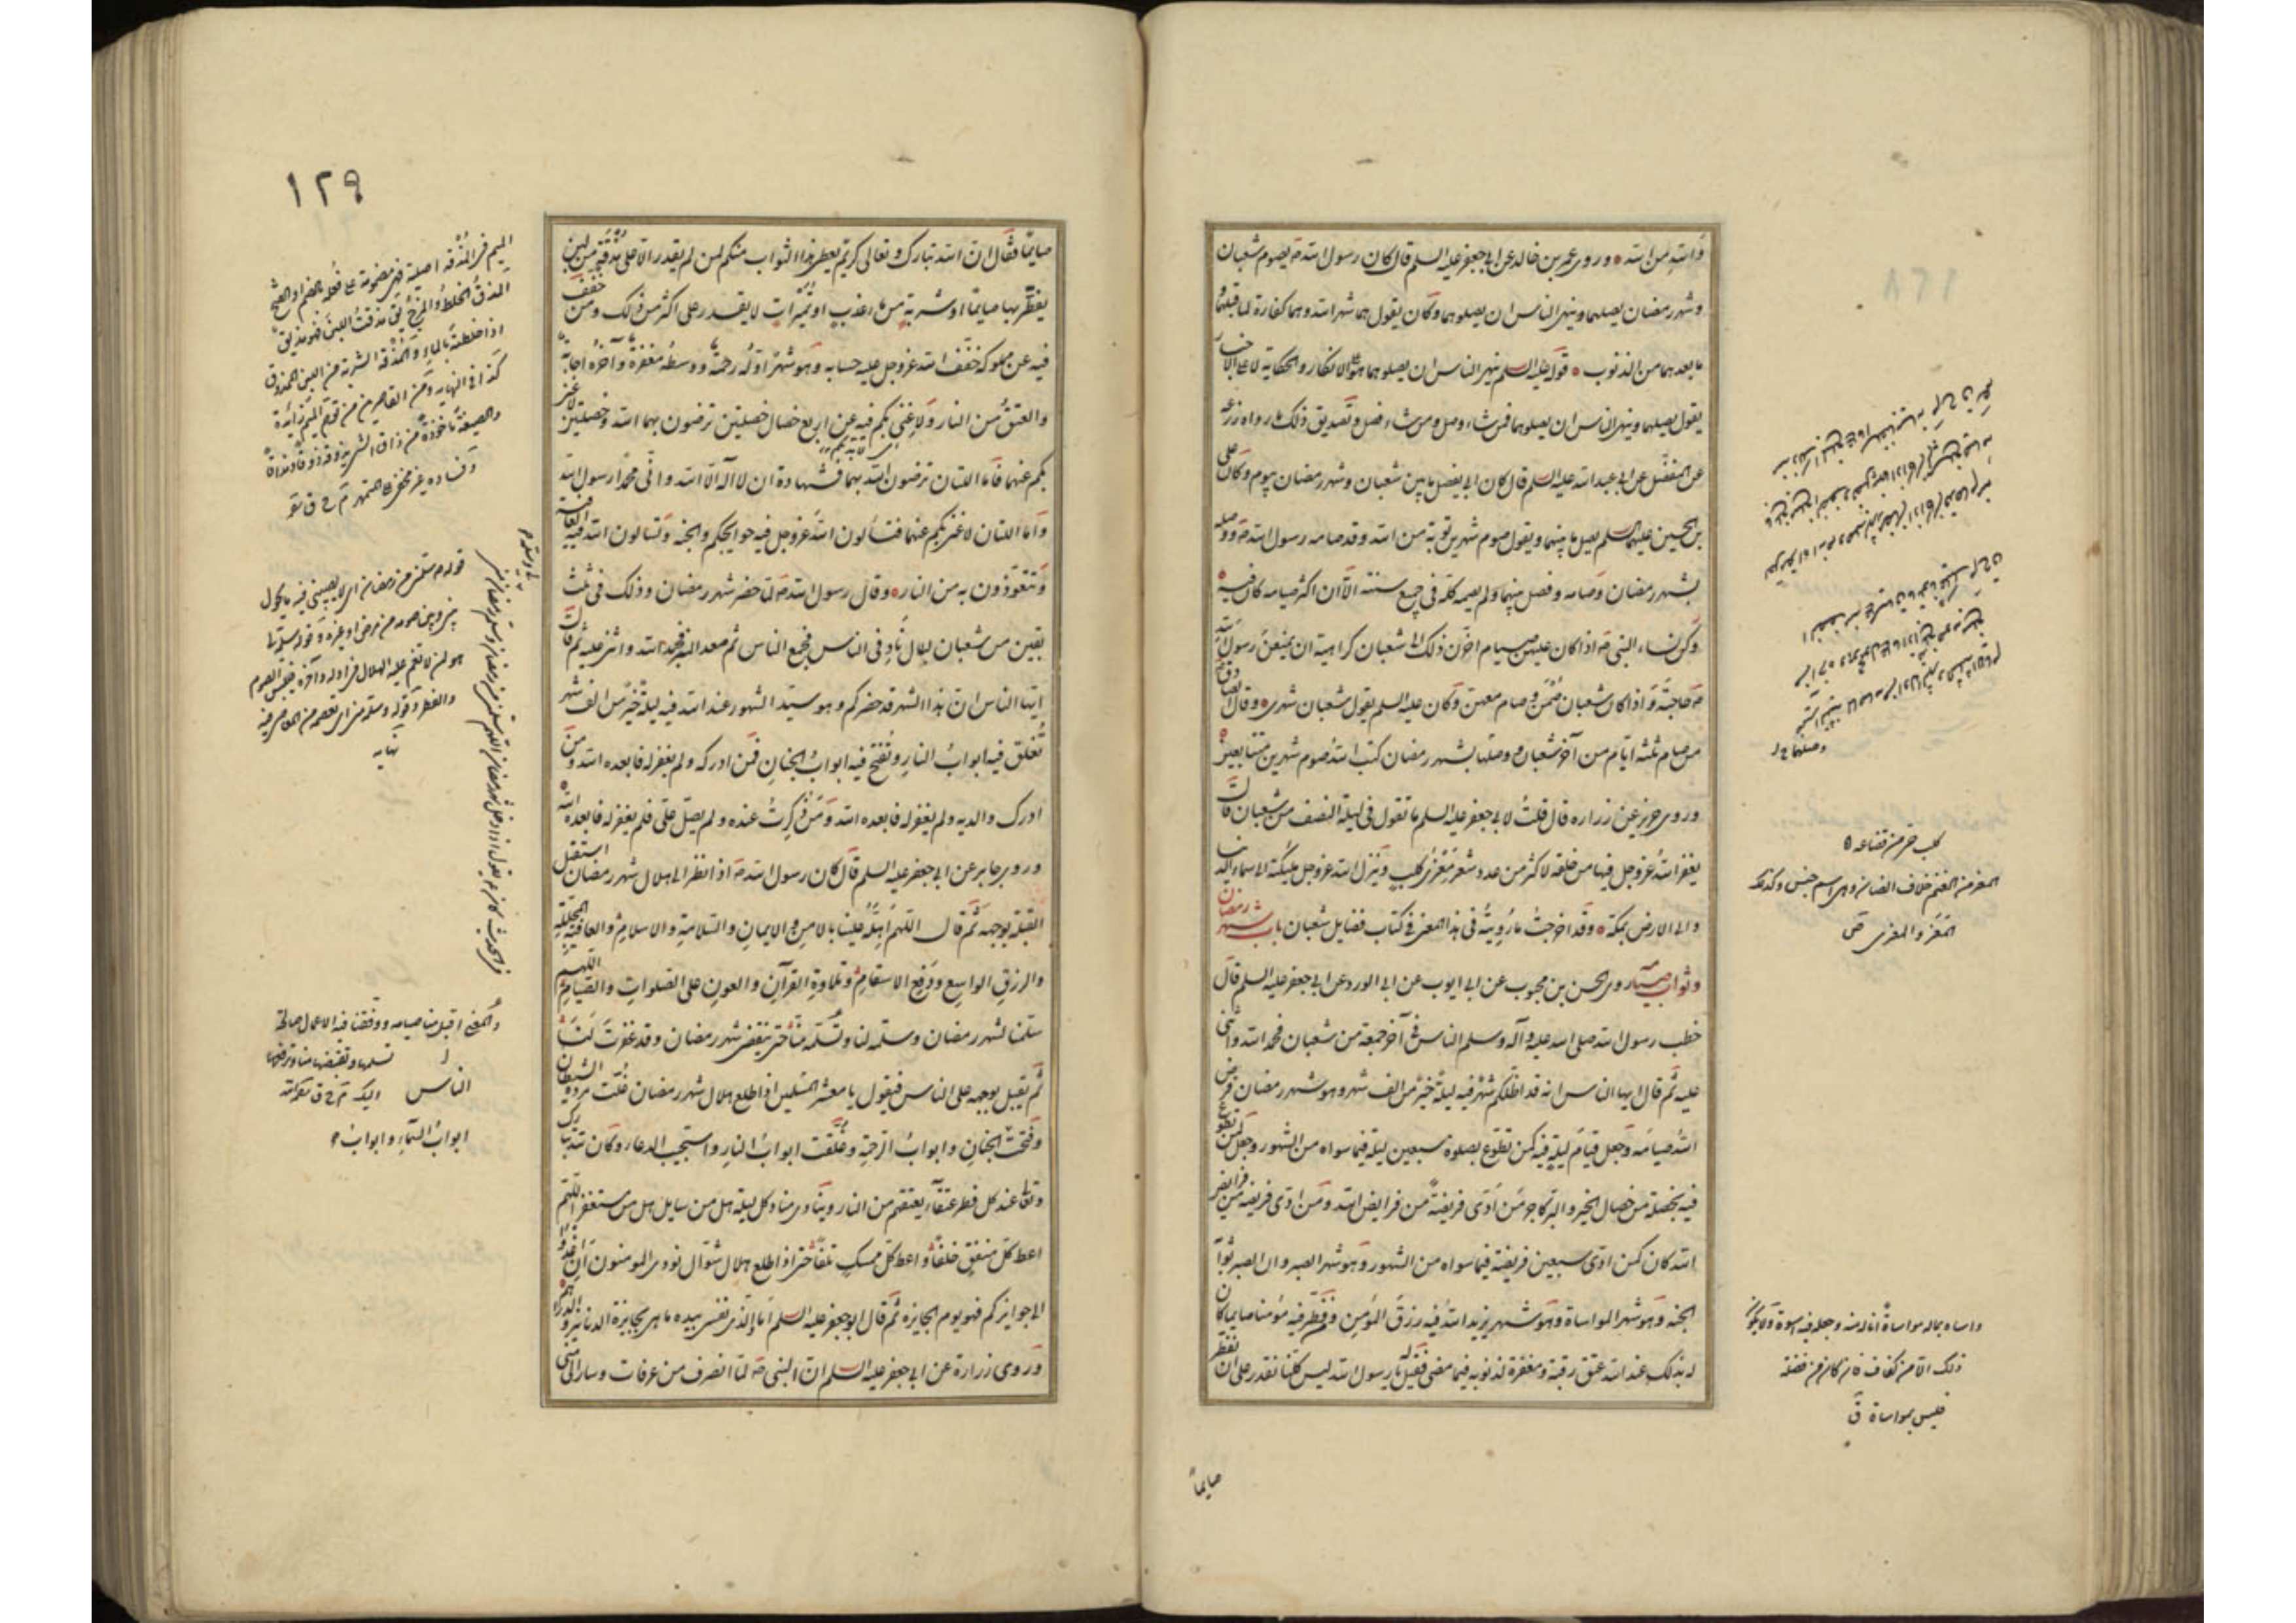 وَاللهِ من الله ٥ وروى عمرو بن خالد عن ابي جعفر عليه السلم قال كان رسول الله صَ يصوم شعبان
وشهر رمضان يصلهما وينهى الناس ان يصلوهما وكان يقول هما شهر الله وهما كفارة لما قبلهما
ما بعدهما من الذنوب ٥ قوله عليه السلم ينهى الناس ان يصلوهما هو الانكار والحكاية لا على الاخبار
يقول يصلهما وينهى الناس ان يصلوهما فمن شاء وصل ومن شاء فصل وتصديق ذلك ما رواه زرعه
عن المفضّل عن ابي عبد الله عليه السلم قال كان ابي يفصل ما بين شعبان وشهر رمضان بيوم وكان علي
بن الحسين عليهما السلم يصل ما بينهما ويقول صوم شهرين توبة من الله وقد صامه رسول الله صَ ووصله
بشهر رمضان وصامه وفصل بينهما ولم يصمه كله في جميع سنته الّا ان اكثر صيامه كان فيه ٥
وكن نساء النبي صَ اذا كان عليهن صيام اخّرن ذلك الى شعبان كراهية ان يمنعن رسول الله
صَ حاجته واذا كان شعبان صُمن وصام معهن وكان عليه السلم يقول شعبان شهري ٥ وقال الصادق
من صام ثلثه ايّام من آخر شعبان ووصلها بشهر رمضان كتب الله صوم شهرين متتابعين ٥
وروى حريز عن زراره قال قلتُ لابي جعفر عليه السلم ما تقول في ليلة النصف من شعبان قال
يغفر اللهُ عزوجل فيها من خلقه لاكثر من عدد شعر مِعْزى كلب وينزل الله عزوجل مليكته الى سماء الدنيا
والى الارض بمكة ٥ وقد اخرجتُ ما رُويتُه في هذا المعنى في كتاب فضايل شعبان باب شهر رمضان
وثواب صيامه روى الحسن بن محبوب عن ابي ايوب عن ابي الورد عن ابي جعفر عليه السلم قال
خطب رسول الله صلى الله عليه وآله وسلم الناس في آخر جمعة من شعبان فحمد الله واثنى
عليه ثم قال ايها الناس انه قد اظلّكم شهرٌ فيه ليلةٌ خيرٌ من الف شهر وهو شهر رمضان فرض
اللهُ صيامَه وجعل قيامَ ليلةٍ فيه كمن تطوّع بصلوة سبعين ليلة فيما سواه من الشهور وجعل لمن تطوع
فيه بخصلة من خصال الخير والبرّ كاجر مَن أدّى فريضةً من فرايض الله ومن ادّى فريضه من فرايض
الله كان كمن ادّى سبعين فريضة فيما سواه من الشهور وهو شهر الصبر وان الصبر ثوابه
الجنه وهو شهر المواساة وهو شهر يزيد الله فيه رزق المؤمن ومن فطّر فيه مؤمنا صايما كان
له بذلك عند الله عتق رقبة ومغفرة لذنوبه فيما مضى فقيل له يا رسول الله ليس كلّنا نقدر على ان نفطر
صايماً
كلب حي من قضاعه ٥
المعز من الغنم خلاف الضان وهو اسم جنس وكذلك
المَعَز والمعزى ص
واساه بماله مواساةً اناله منه وجعله فيه اسوة ولا يكون
ذلك الا من كفاف فان كان من فضله
فليس بمواساة ق
١٢٩
صايمًا فقال انّ الله تبارك وتعالى كريمٌ يعطي هذا الثواب منكم لمن لم يقدر الّا على مُذقةٍ من لبن
يفطّر بها صايمًا او شربةٍ من ماء عذب او تُميراتٍ لا يقدر على اكثر من ذلك ومن خفف
فيه عن مملوكه خفّف الله عزوجل عليه حسابه وهو شهر اوّلُه رحمةٌ ووسطُه مغفرةٌ وآخرُه اجابة
والعتقُ من النار ولا غنى بكم فيه عن اربع خصال خصلتين ترضون بهما الله وخصلتين لا غنى
بكم عنهما فامّا اللتان ترضون الله بهما فشهادة ان لا اله الّا الله وانّى محمدًا رسول الله
وامّا اللتان لا غنى بكم عنهما فتسألون اللهَ عزوجل فيه حوايجكم والجنه وتسالون الله فيه العافية
وتتعوّذون به من النار ٥ وقال رسول الله صَ لمّا حضر شهر رمضان وذلك في ثلث
بقين من شعبان لبلال نادِ في الناس فجمع الناس ثم صعد المنبر فحمد الله واثنى عليه ثم قال
ايّها الناس انّ هذا الشهر قد حضركم وهو سيّد الشهور عند الله فيه ليلةٌ خيرٌ من الف شهر
تُغلق فيه ابوابُ النارِ وتُفتح فيه ابوابُ الجنانِ فمن ادركه ولم يغفر له فابعده الله ومن
ادرك والديه ولم يغفر له فابعده الله ومَن ذُكِرتُ عنده ولم يصلّ علىّ فلم يغفر له فابعده الله ٥
وروى جابر عن ابي جعفر عليه السلم قال كان رسول الله صَ اذا نظر الى هلال شهر رمضان استقبل
القبلة بوجهه ثم قال اللهمّ اَهِلّه علينا بالامنِ والايمانِ والسّلامةِ والاسلامِ والعافيةِ المجلّلةِ
والرزقِ الواسعِ ودَفعِ الاسقامِ وتلاوةِ القرآنِ والعونِ على الصّلواتِ والصّيامِ اللهمّ
سلّمنا لشهر رمضان وسلّمه لنا وتسلّمه منّا حتى ينقضى شهر رمضان وقد غفرت لنا
ثم يقبل بوجهه على الناس فيقول يا معشر المسلمين اذا طلع هلال شهر رمضان غُلّت مردة الشيطان
وفُتحت الجنانِ وابوابُ الرّحمةِ وغُلّقت ابوابُ النارِ واستجيب الدعاء وكان لله تبارك
وتعالى عند كل فطر عتقاء يعتقهم من النار وينادى مناد كل ليلة هل من سايل هل من مستغفر اللهم
اعط كل منفقٍ خلفًا واعط كل ممسكٍ تلفًا حتى اذا طلع هلال شوّال نودى المومنون اَنِ اغدوا
الى جوايزكم فهو يوم الجايزه ثم قال ابو جعفر عليه السلم اَما والّذى نفسى بيده ما هى بجايزة الدنانير والدراهم
وروى زرارة عن ابي جعفر عليه السلم انّ النبى صَ لمّا انصرف من عرفات وسار الى منى
الميم فى المُذقة اصلية فهى مضمومة على فُعلة بالضم او الفتح
اذا خلطتَه بالماء والمُذقة الشربة من اللبن الممذوق
كذا في النهايه ومن القاصرين من توهّم الميم زائدة
والصيغة ماخوذة من ذاق الشئ يذوقه ذوقا ومذاقا
قوله م سلمنى من رمضان اى لا يصيبنى فيه ما يحول
بينى وبين صومه من مرض او غيره وقوله سلمه لنا
هو ان لا يغم عليه الهلال فى اوله وآخره فيلتبس الصوم
والفطر وقوله وسلمه منى اى يعصمه من المعاصى فيه
نهايه
والمعنى اقبل منا صيامه ووفقنا فيه الاعمال صالحة
تسلمها وتقبضها منا وترفعها
اليك
الناس
ابوابُ السّماءِ وابوابُ